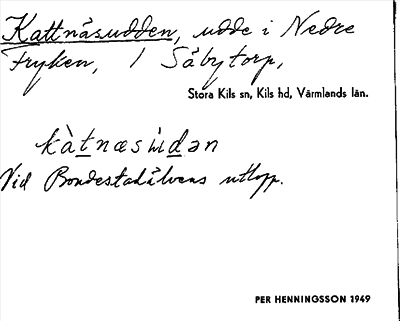 Kattnäsudden, udde i Nedre
Fryken, / Såbytorp,
Stora Kils sn, Kils hd, Värmlands län.
kàt̲næsùd̲ən
Vid Bondestadälvens utlopp.
PER HENNINGSSON 1949